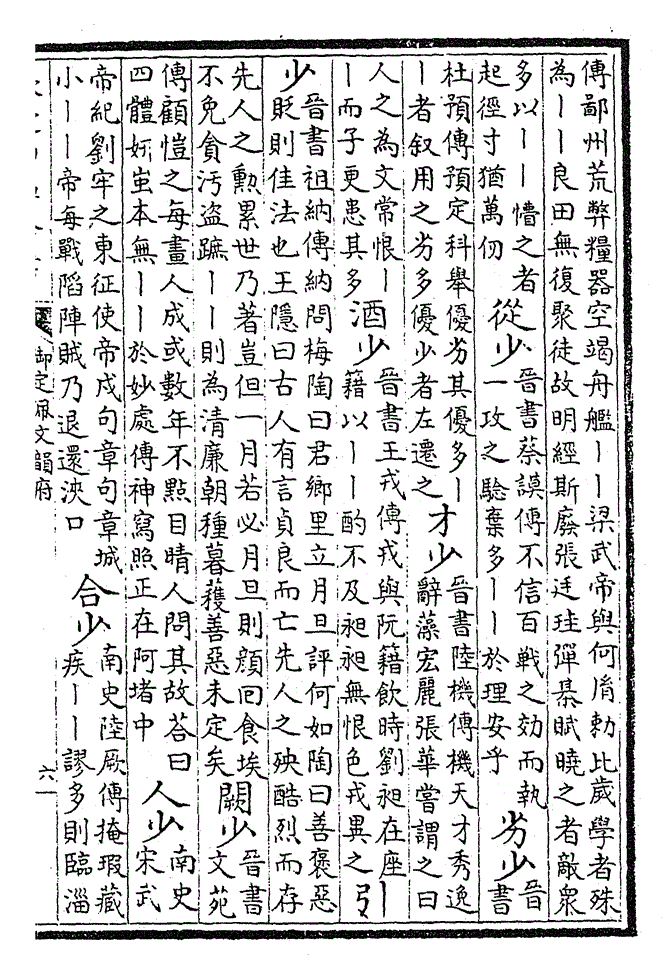 傳鄙州荒弊糧器空竭舟艦丨丨梁武帝與何胤勅比歲學者殊
為丨丨良田無復聚徒故明經斯廢張廷珪彈棊賦曉之者敵衆
多以丨丨懵之者
起徑寸猶萬仞
從少
晉書蔡謨傳不信百戰之効而執
一攻之驗棄多丨丨於理安乎
劣少
晉
書
杜預傳預定科舉優劣其優多丨
丨者叙用之劣多優少者左遷之
才少
晉書陸機傳機天才秀逸
辭藻宏麗張華嘗謂之曰
人之為文常恨丨
丨而子更患其多
酒少
晉書王戎傳戎與阮籍飲時劉昶在座丨
籍以丨丨酌不及昶昶無恨色戎異之
引
少
晉書祖納傳納問梅陶曰君鄉里立月旦評何如陶曰善褒惡
貶則佳法也王隱曰古人有言貞良而亡先人之殃酷烈而存
先人之勳累世乃著豈但一月若必月旦則顏回食埃
不免貪汚盜蹠丨丨則為清廉朝種暮穫善惡未定矣
闕少
晉書
文苑
傳顧愷之每畫人成或數年不點目睛人問其故答曰
四體妍蚩本無丨丨於妙處傳神寫照正在阿堵中
人少
南史
宋武
帝紀劉牢之東征使帝戍句章句章城
小丨丨帝每戰陷陣賊乃退還浹口
合少
南史陸厥傳掩瑕藏
疾丨丨謬多則臨淄
御定佩文韻府
六